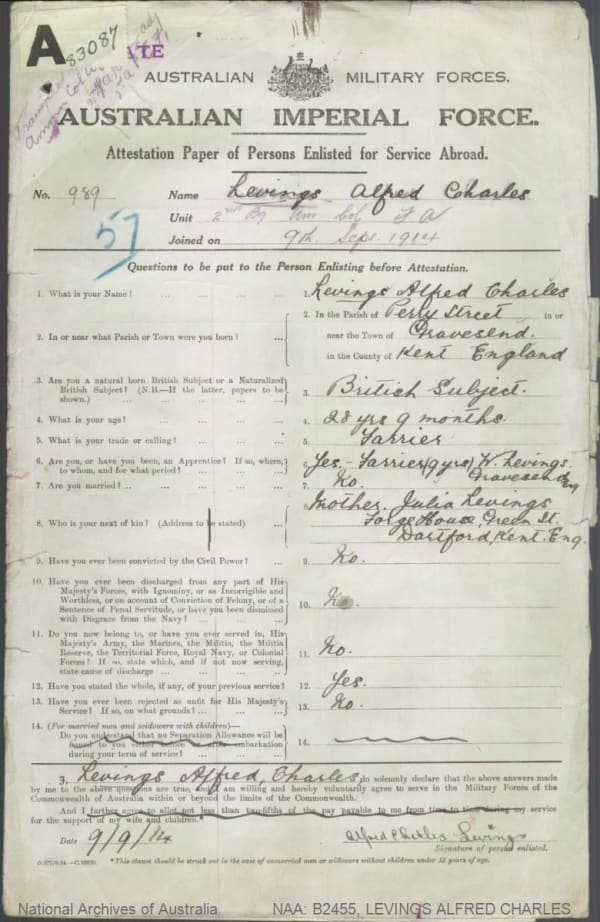 A 83087
AUSTRALIAN MILITARY FORCES.
AUSTRALIAN IMPERIAL FORCE.
Attestation Paper of Persons Enlisted for Service Abroad.
No. 989 Name Levings Alfred Charles
Unit 2nd
57
Joined on 9th. Sept. 1914
Questions to be put to the Person Enlisting before Attestation.
1. What is your Name? ... ... ... ... 1. Levings Alfred Charles
2. In or near what Parish or Town were you born? ... 2. In the Parish of Perry Street in or
near the Town of Gravesend.
in the County of Kent England
3. Are you a natural born British Subject or a Naturalized
British Subject? (N.B.—If the latter, papers to be
shown.) ... ... ... ... ... 3. British Subject.
4. What is your age? ... ... ... ... 4. 28 yrs 9 months.
5. What is your trade or calling? ... ... ... 5. Farrier
6. Are you, or have you been, an Apprentice? If so, where,
to whom, and for what period? ... ... ... 6. Yes - Farrier (9 yrs) W. Levings.
Gravesend Eng
7. Are you married? ... ... ... ... 7. No.
8. Who is your next of kin? (Address to be stated) ... 8. Mother. Julia Levings
Forge House, Green St.
Dartford, Kent. Eng.
9. Have you ever been convicted by the Civil Power? ... 9. No.
10. Have you ever been discharged from any part of His
Majesty's Forces, with Ignominy, or as Incorrigible and
Worthless, or on account of Conviction of Felony, or of a
Sentence of Penal Servitude, or have you been dismissed
with Disgrace from the Navy? ... ... ... 10. No.
11. Do you now belong to, or have you ever served in, His
Majesty's Army, the Marines, the Militia, the Militia
Reserve, the Territorial Force, Royal Navy, or Colonial
Forces? If so, state which, and if not now serving,
state cause of discharge ... ... ... 11. No.
12. Have you stated the whole, if any, of your previous service? 12. Yes.
13. Have you ever been rejected as unfit for His Majesty's
Service? If so, on what grounds? ... ... ... 13. No.
14. (For married men and widowers with children)—
Do you understand that no Separation Allowance will be
issued to you either before or after embarkation
during your term of service? ... ... ... 14.
I, Levings Alfred Charles do solemnly declare that the above answers made
by me to the above questions are true, and I am willing and hereby voluntarily agree to serve in the Military Forces of the
Commonwealth of Australia within or beyond the limits of the Commonwealth.
And I further agree to allot not less than two-fifths of the pay payable to me from time to time during my service
for the support of my wife and children.*
Date 9/9/14 Alfred Charles Levings
Signature of person enlisted.
*This clause should be struck out in the case of unmarried men or widowers without children under 18 years of age.
National Archives of Australia NAA: B2455, LEVINGS ALFRED CHARLES